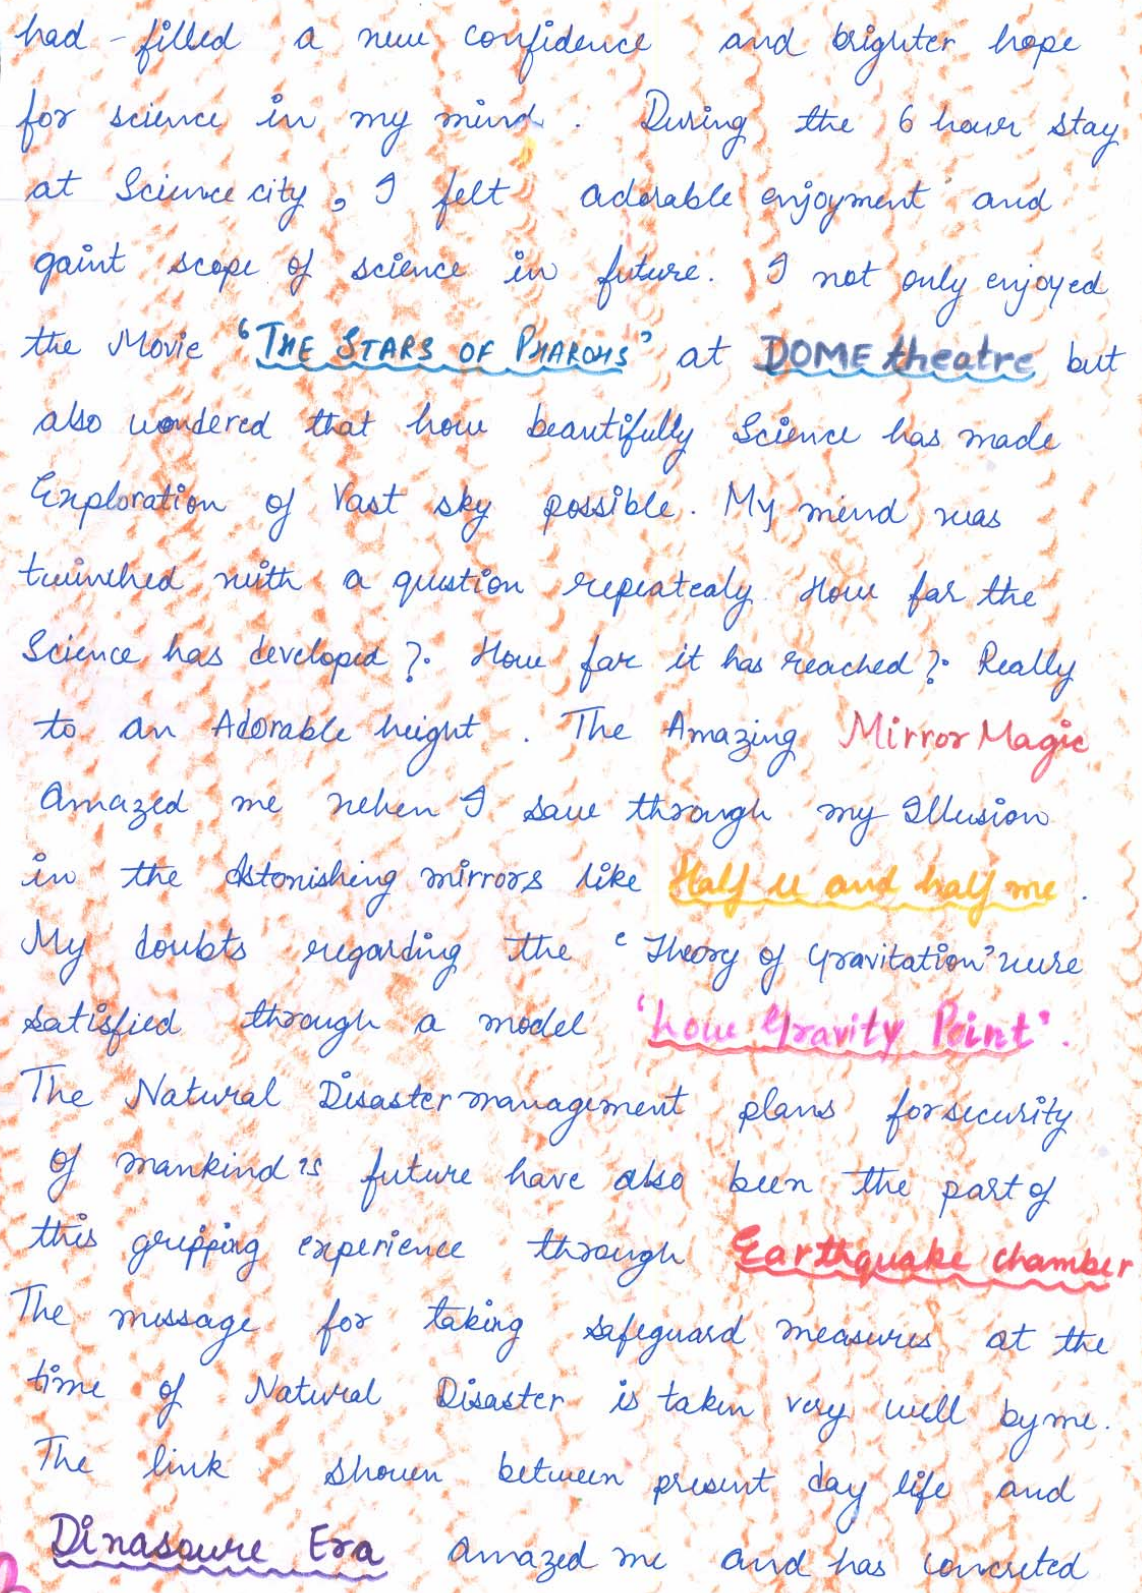 had - filled a new confidence and brighter hope
for science in my mind. During the 6 hour stay
at Science city, I felt adorable enjoyment and
gaint scope of science in future. I not only enjoyed
the Movie 'THE STARS OF PHAROHS' at DOME theatre but
also wondered that how beautifully Science has made
Exploration of Vast sky possible. My mind was
twinched with a question repeatealy How far the
Science has developed ?. How far it has reached ?. Really
to an Adorable height. The Amazing Mirror Magic
Amazed me when I saw through my Illusion
in the Astonishing mirrors like Half u and half me.
My doubts regarding the 'Theory of Gravitation' were
satisfied through a model 'Low Gravity Point'.
The Natural Disaster management plans for security
of mankind is future have also been the part of
this gripping experience through Earthquake chamber
The message for taking safeguard measures at the
time of Natural Disaster is taken very well by me.
The link shown between present day life and
Dinasoure Era amazed me and has concreted